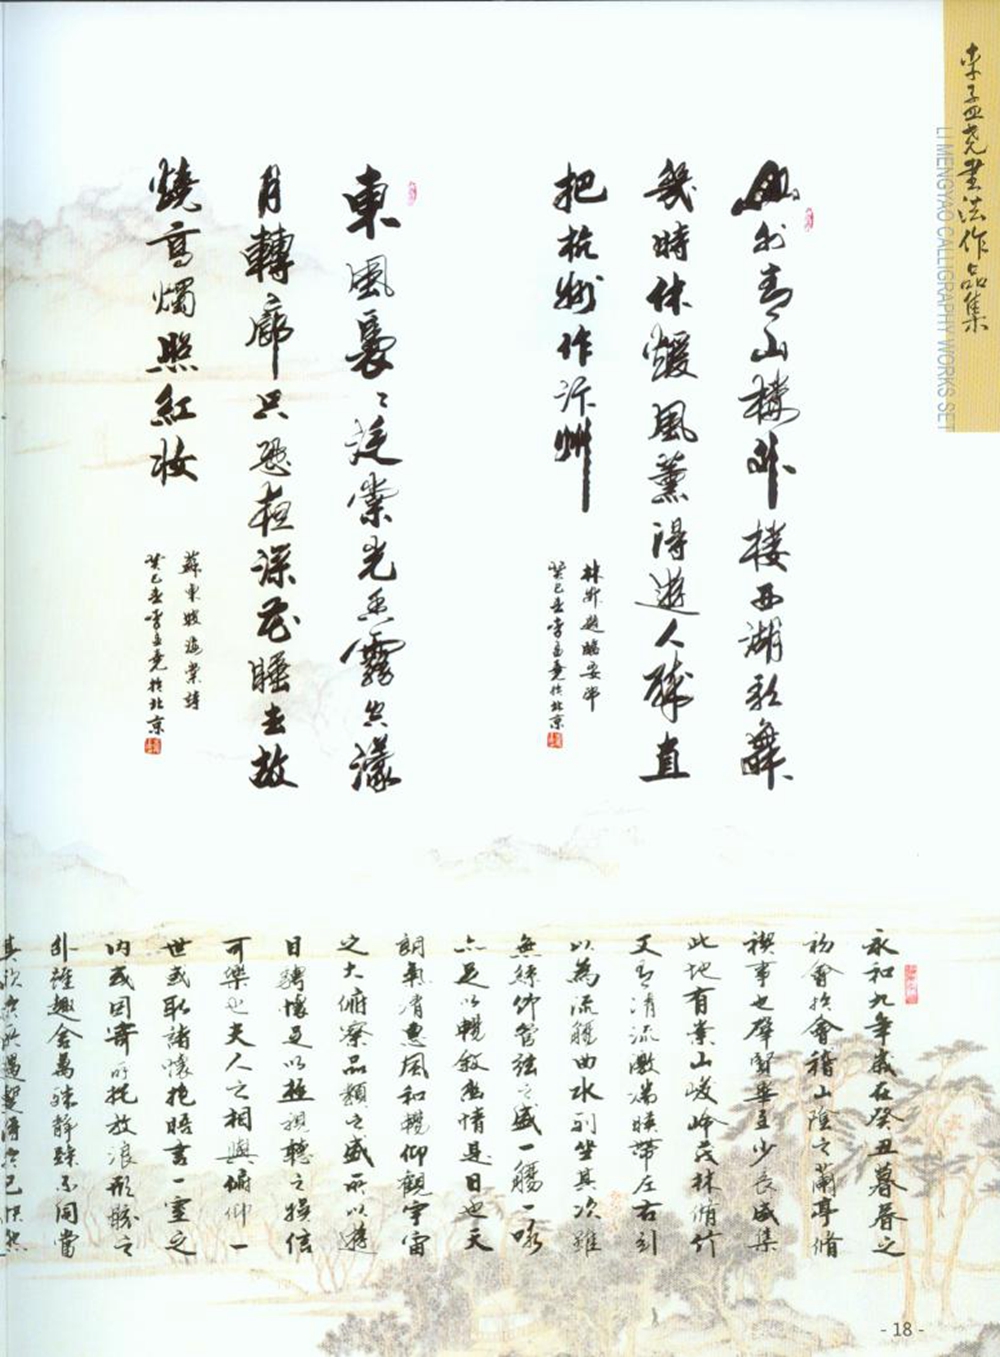 李孟尧書法作品集
LI MENGYAO CALLIGRAPHY WORKS SET
山外青山樓外楼西湖歌舞
幾時休煖風薰得遊人醉直
把杭州作汴州
林升題臨安邸
癸巳春李孟堯於北京
東風裊〻泛崇光香霧空濛
月轉廊只恐夜深花睡去故
燒高燭照紅妝
蘇東坡海棠詩
癸巳春李孟堯於北京
永和九年歲在癸丑暮春之
初會於會稽山陰之蘭亭脩
禊事也羣賢畢至少長咸集
此地有崇山峻嶺茂林脩竹
又有清流激湍暎帶左右引
以為流觴曲水列坐其次雖
無絲竹管弦之盛一觴一詠
亦足以暢敘幽情是日也天
朗氣清惠風和暢仰觀宇宙
之大俯察品類之盛所以遊
目騁懷足以極視聽之娛信
可樂也夫人之相與俯仰一
世或取諸懷抱晤言一室之
內或因寄所託放浪形骸之
外雖趣舍萬殊靜躁不同當
其欣於所遇暫得於己快然
- 18 -